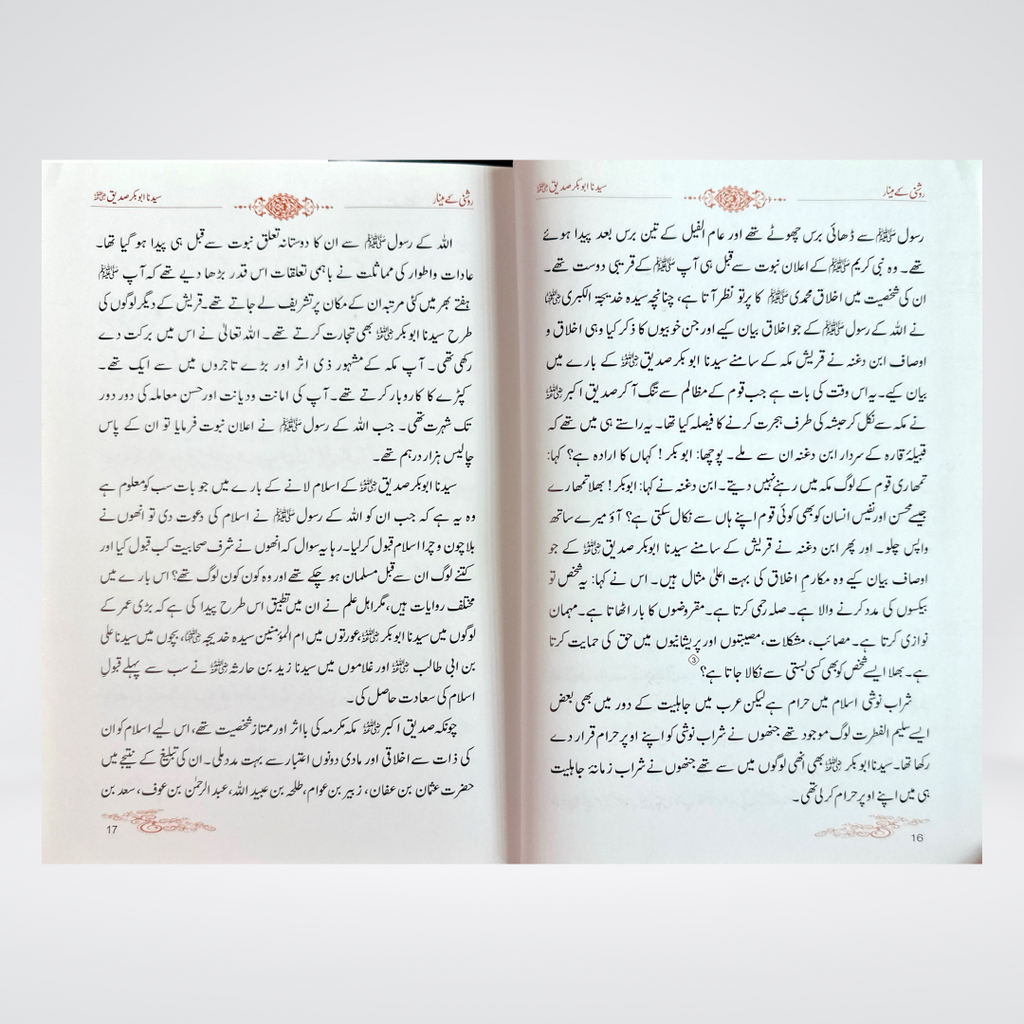 روشنی کے مینار
سیدنا ابوبکر صدیق رضی اللہ عنہ
رسول ﷺ سے ڈھائی برس چھوٹے تھے اور عام الفیل کے تین برس بعد پیدا ہوئے
تھے۔ وہ نبی کریم ﷺ کے اعلان نبوت سے قبل ہی آپ ﷺ کے قریبی دوست تھے۔
ان کی شخصیت میں اخلاق محمدی ﷺ کا پرتو نظر آتا ہے، چنانچہ سیدہ خدیجۃ الکبریٰ رضی اللہ عنہا
نے اللہ کے رسول ﷺ کے جو اخلاق بیان کیے اور جن خوبیوں کا ذکر کیا وہی اخلاق و
اوصاف ابن دغنہ نے قریش مکہ کے سامنے سیدنا ابوبکر صدیق رضی اللہ عنہ کے بارے میں
بیان کیے۔ یہ اس وقت کی بات ہے جب قوم کے مظالم سے تنگ آ کر صدیق اکبر رضی اللہ عنہ
نے مکہ سے نکل کر حبشہ کی طرف ہجرت کرنے کا فیصلہ کیا تھا۔ یہ راستے ہی میں تھے کہ
قبیلۂ قارہ کے سردار ابن دغنہ ان سے ملے۔ پوچھا: ابوبکر! کہاں کا ارادہ ہے؟ کہا:
تمھاری قوم کے لوگ مکہ میں رہنے نہیں دیتے۔ ابن دغنہ نے کہا: ابوبکر! بھلا تمھارے
جیسے محسن اور نفیس انسان کو بھی کوئی قوم اپنے ہاں سے نکال سکتی ہے؟ آؤ میرے ساتھ
واپس چلو۔ اور پھر ابن دغنہ نے قریش کے سامنے سیدنا ابوبکر صدیق رضی اللہ عنہ کے جو
اوصاف بیان کیے وہ مکارمِ اخلاق کی بہت اعلیٰ مثال ہیں۔ اس نے کہا: یہ شخص تو
بیکسوں کی مدد کرنے والا ہے۔ صلہ رحمی کرتا ہے۔ مقروضوں کا بار اٹھاتا ہے۔ مہمان
نوازی کرتا ہے۔ مصائب، مشکلات، مصیبتوں اور پریشانیوں میں حق کی حمایت کرتا
ہے۔ بھلا ایسے شخص کو بھی کسی بستی سے نکالا جاتا ہے؟ ③
شراب نوشی اسلام میں حرام ہے لیکن عرب میں جاہلیت کے دور میں بھی بعض
ایسے سلیم الفطرت لوگ موجود تھے جنھوں نے شراب نوشی کو اپنے اوپر حرام قرار دے
رکھا تھا۔ سیدنا ابوبکر رضی اللہ عنہ بھی انھی لوگوں میں سے تھے جنھوں نے شراب زمانۂ جاہلیت
ہی میں اپنے اوپر حرام کرلی تھی۔
16
روشنی کے مینار
سیدنا ابوبکر صدیق رضی اللہ عنہ
اللہ کے رسول ﷺ سے ان کا دوستانہ تعلق نبوت سے قبل ہی پیدا ہو گیا تھا۔
عادات و اطوار کی مماثلت نے باہمی تعلقات اس قدر بڑھا دیے تھے کہ آپ ﷺ
ہفتے بھر میں کئی مرتبہ ان کے مکان پر تشریف لے جاتے تھے۔ قریش کے دیگر لوگوں کی
طرح سیدنا ابوبکر رضی اللہ عنہ بھی تجارت کرتے تھے۔ اللہ تعالیٰ نے اس میں برکت دے
رکھی تھی۔ آپ مکہ کے مشہور ذی اثر اور بڑے تاجروں میں سے ایک تھے۔
کپڑے کا کاروبار کرتے تھے۔ آپ کی امانت و دیانت اور حسن معاملہ کی دور دور
تک شہرت تھی۔ جب اللہ کے رسول ﷺ نے اعلان نبوت فرمایا تو ان کے پاس
چالیس ہزار درہم تھے۔
سیدنا ابوبکر صدیق رضی اللہ عنہ کے اسلام لانے کے بارے میں جو بات سب کو معلوم ہے
وہ یہ ہے کہ جب ان کو اللہ کے رسول ﷺ نے اسلام کی دعوت دی تو انھوں نے
بلا چون و چرا اسلام قبول کرلیا۔ رہا یہ سوال کہ انھوں نے شرف صحابیت کب قبول کیا اور
کتنے لوگ ان سے قبل مسلمان ہو چکے تھے اور وہ کون کون لوگ تھے؟ اس بارے میں
مختلف روایات ہیں، مگر اہل علم نے ان میں تطبیق اس طرح پیدا کی ہے کہ بڑی عمر کے
لوگوں میں سیدنا ابوبکر رضی اللہ عنہ، عورتوں میں ام المؤمنین سیدہ خدیجہ رضی اللہ عنہا، بچوں میں سیدنا علی
بن ابی طالب رضی اللہ عنہ اور غلاموں میں سیدنا زید بن حارثہ رضی اللہ عنہ نے سب سے پہلے قبولِ
اسلام کی سعادت حاصل کی۔
چونکہ صدیق اکبر رضی اللہ عنہ مکہ مکرمہ کی بااثر اور ممتاز شخصیت تھے، اس لیے اسلام کو ان
کی ذات سے اخلاقی اور مادی دونوں اعتبار سے بہت مدد ملی۔ ان کی تبلیغ کے نتیجے میں
حضرت عثمان بن عفان، زبیر بن عوام، طلحہ بن عبید اللہ، عبد الرحمٰن بن عوف، سعد بن
17